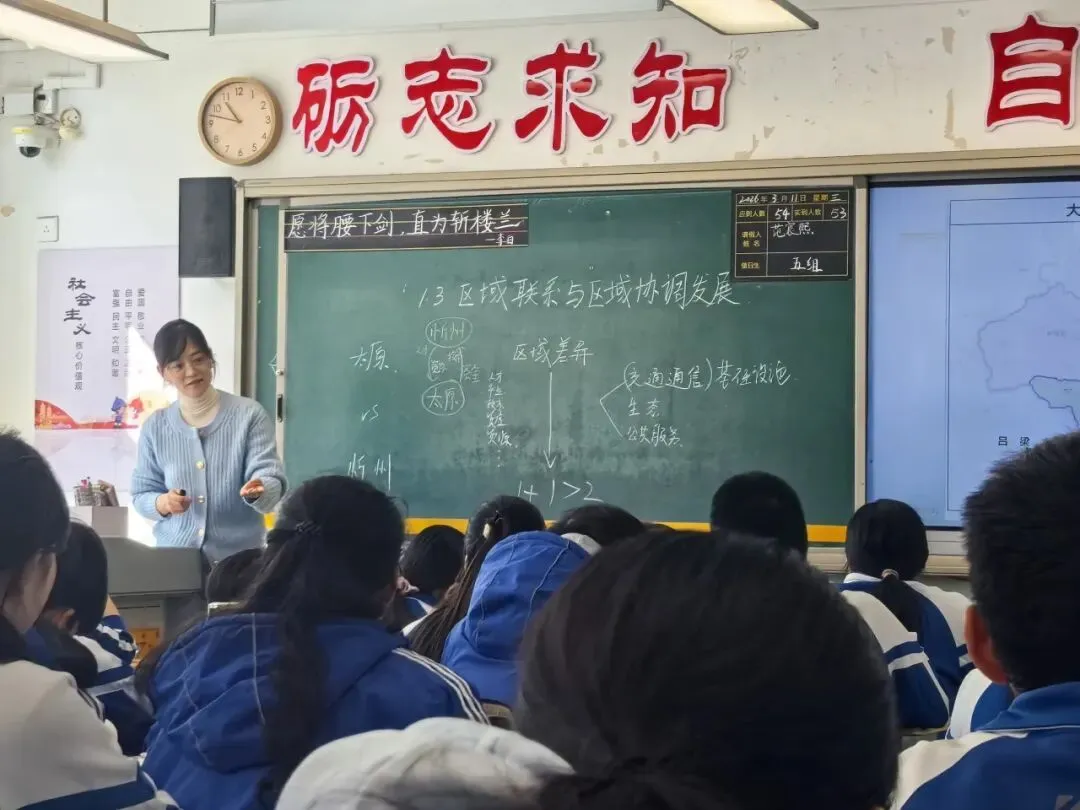 励志求知 自
12 1 2 3 4 5 6 7 8 9 10 11
愿将腰下剑,直为斩楼兰
—李白
2026年3月11日 星期三
应到人数 54 实到人数 53
请假人姓名 范宸熙
值日生 五组
大
社会主义
核心价值观
富强 民主 文明 和谐
自由 平等
爱国 敬业
1.3 区域联系与区域协调发展
太原
vs
忻州
忻州
太原
人才
技术
资金
资源
区域差异
1+1>2
(交通通信)基础设施
生态
公共服务
吕 梁